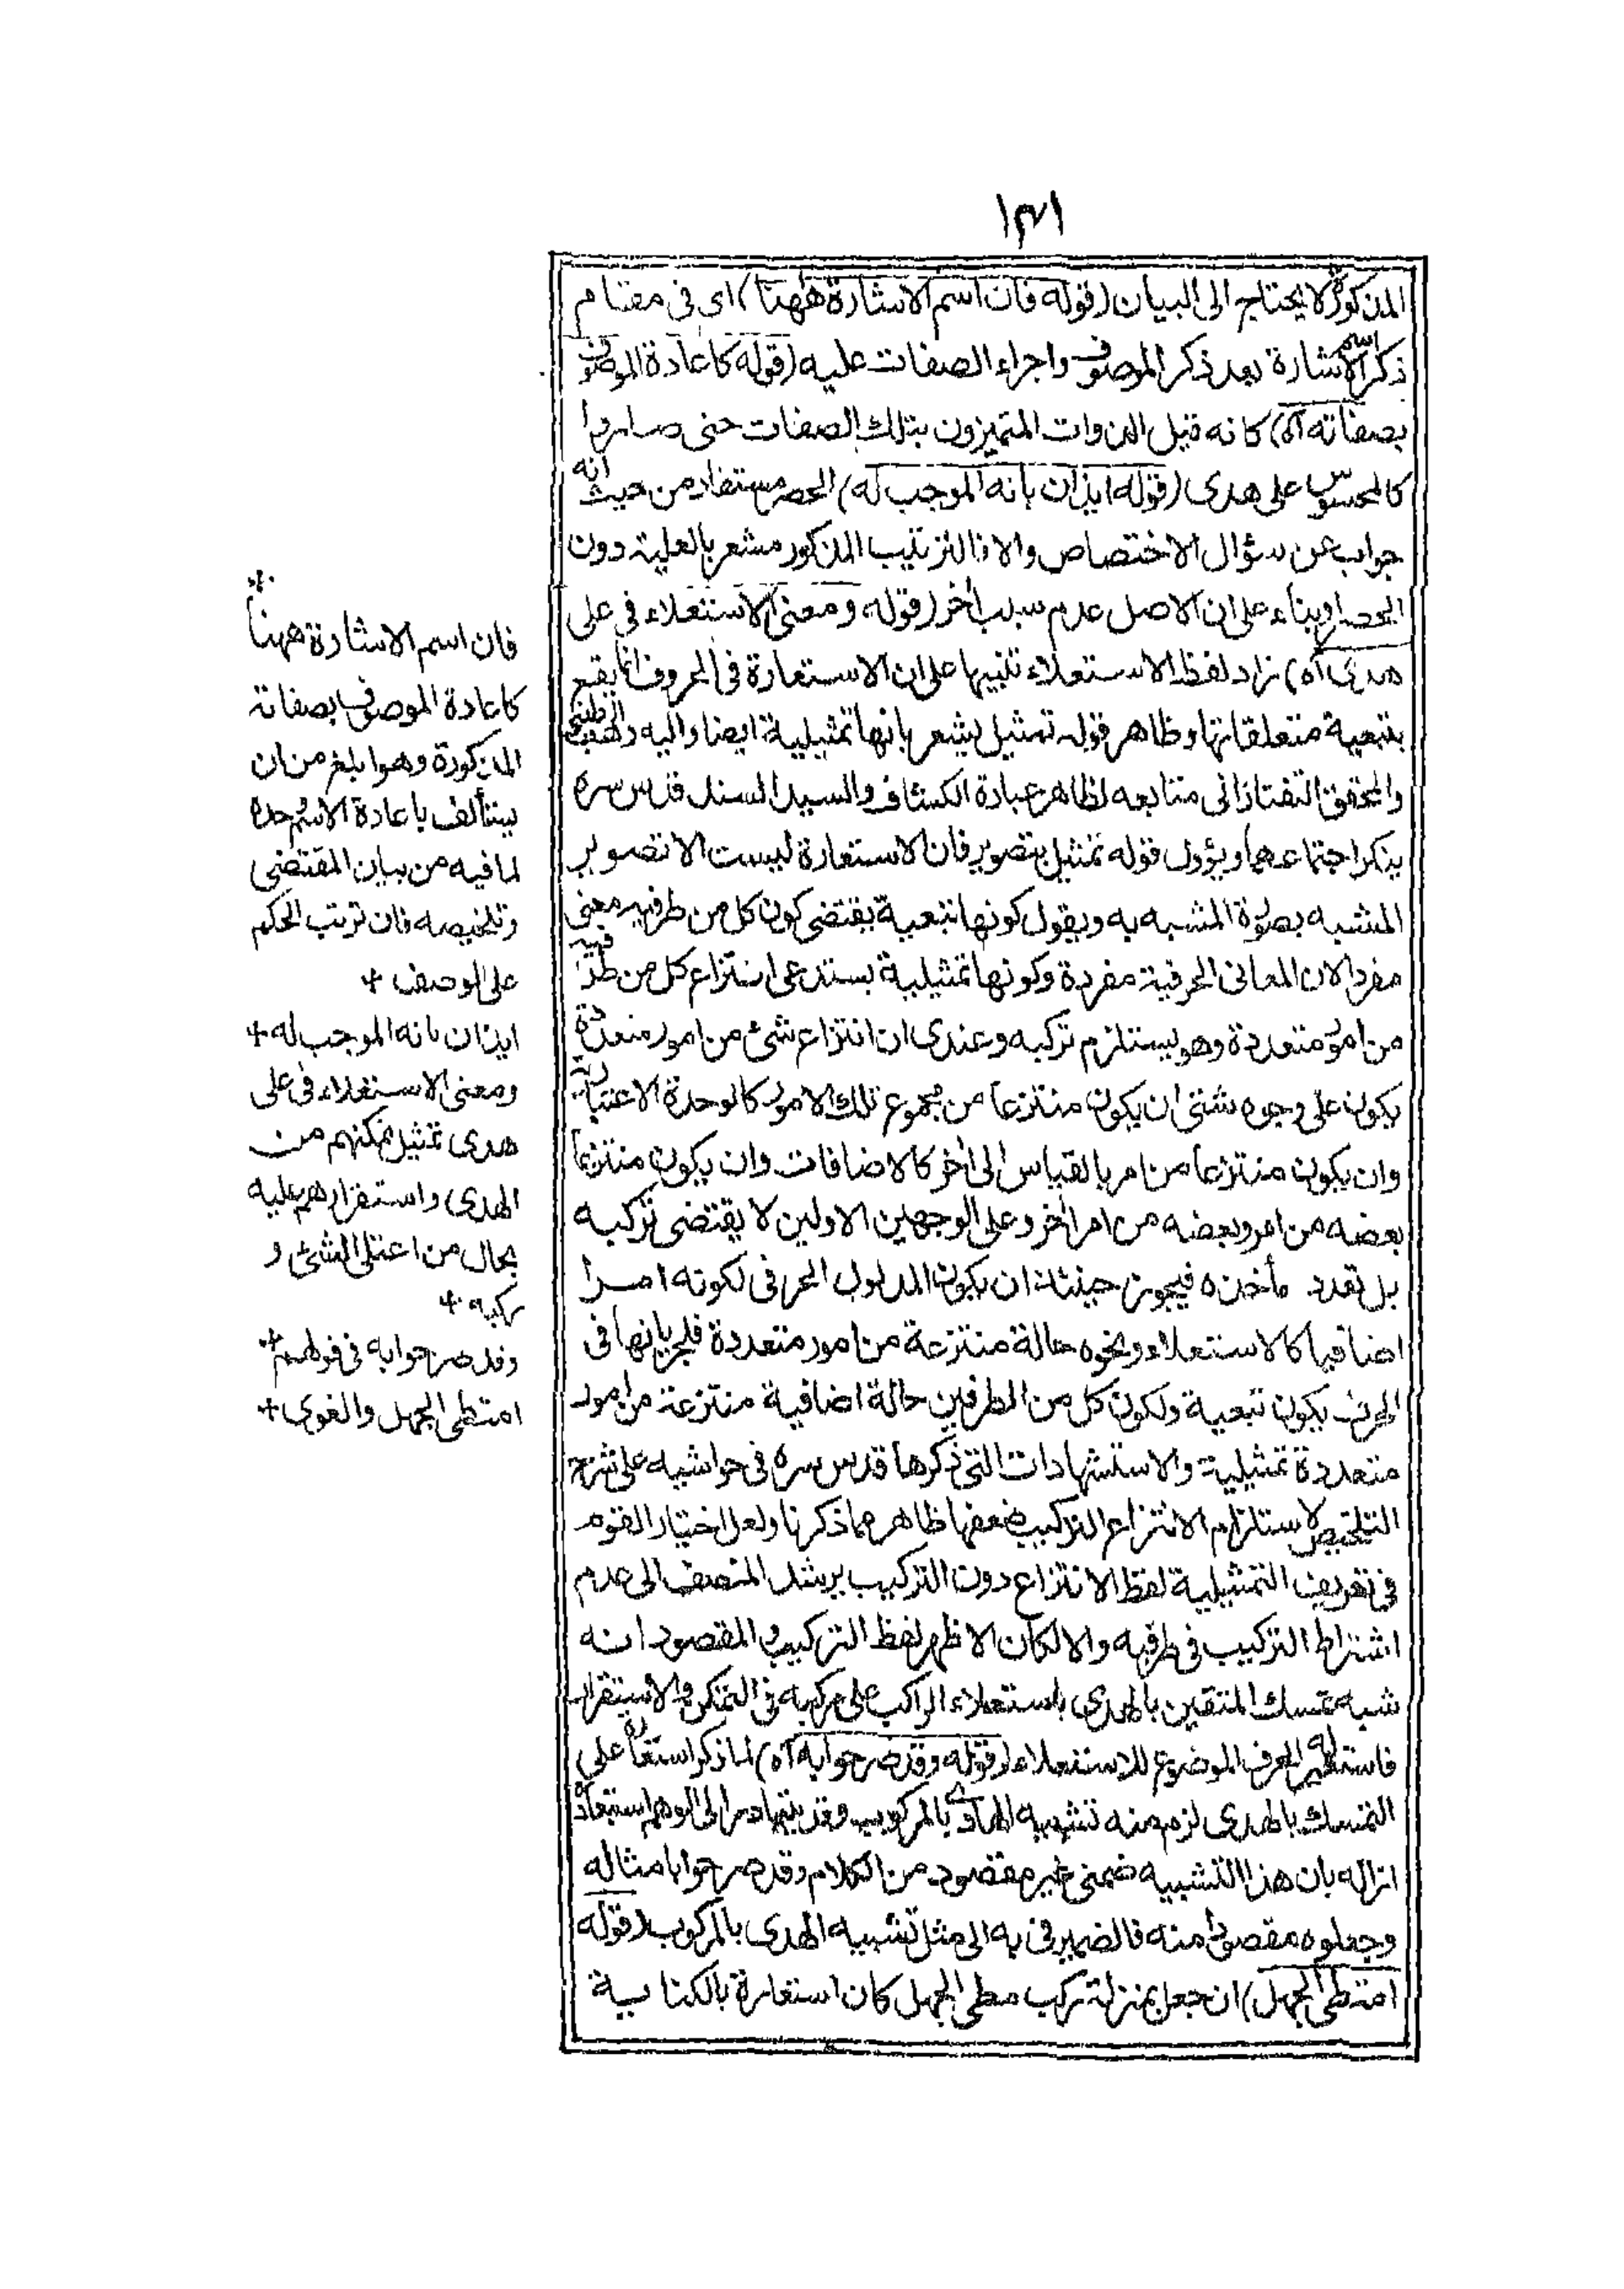 ١٣١
المذكورة لا يحتاج الى البيان (قوله فان اسم الاشارة ههنا) اى فى مقام
ذكر اسم الاشارة بعد ذكر الموصوف واجراء الصفات عليه (قوله كاعادة الموصوف
بصفاته آه) كانه قيل الذوات المتميزون بتلك الصفات حتى صاروا
كالمحسوس على هدى (قوله ايذان بانه الموجب له) الحصر مستفاد من حيث انه
جواب عن سؤال الاختصاص والا فالترتيب المذكور مشعر بالعلية دون
الحصر او بناء على ان الاصل عدم سبب آخر (قوله ومعنى الاستعلاء فى على
هدى آه) زاد لفظ الاستعلاء تنبيها على ان الاستعارة فى الحروف انما يقع
بتبعية متعلقاتها وظاهر قوله تمثيل يشعر بانها تمثيلية ايضا واليه ذهب الطيبى
والمحقق التفتازانى متابعه لظاهر عبارة الكشاف والسيد السند قدس سره
ينكر اجتماعهما ويؤول قوله تمثيل بتصوير فان الاستعارة ليست الا تصوير
المشبه بصورة المشبه به ويقول كونها تبعية يقتضى كون كل من طرفيه معنى
مفردا لان المعانى الحرفية مفردة وكونها تمثيلية يستدعى انتزاع كل من طرفيه
من امور متعددة وهو يستلزم تركبه وعندى ان انتزاع شئ من امور متعددة
يكون على وجوه شتى ان يكون منتزعا من مجموع تلك الامور كالوحدة الاعتبارية
وان يكون منتزعا من امر بالقياس الى آخر كالاضافات وان يكون منتزعا
بعضه من امر وبعضه من امر آخر وعلى الوجهين الاولين لا يقتضى تركبه
بل تعدد مأخذه فيجوز حينئذ ان يكون المدلول الحرفى لكونه امرا
اضافيا كالاستعلاء ونحوه حالة منتزعة من امور متعددة فلجريانها فى
الحرف يكون تبعية ولكون كل من الطرفين حالة اضافية منتزعة من امور
متعددة تمثيلية والاستشهادات التى ذكرها قدس سره فى حواشيه على شرح
التلخيص لاستلزام الانتزاع التركيب ضعفها ظاهر مما ذكرنا ولعل اختيار القوم
فى تعريف التمثيلية لفظ الانتزاع دون التركيب يرشد المنصف الى عدم
اشتراط التركيب فى طرفيه والا لكان الاظهر لفظ التركيب والمقصود انه
شبه تمسك المتقين بالهدى باستعلاء الراكب على مركبه فى التمكن والاستقرار
فاستعير له الحرف الموضوع للاستعلاء (قوله وقد صرحوا به آه) لما ذكر استعارة على
التمسك بالهدى لزم منه تشبيه الهدى بالمركوب وقد يتبادر الى الوهم استبعاده
ازاله بان هذا التشبيه ضمنى غير مقصود من الكلام وقد صرحوا بامثاله
وجعلوه مقصودا منه فالضمير فى به الى مثل تشبيه الهدى بالمركوب (قوله
امتطى الجهل) ان جعل بمنزلة ركب مطى الجهل كان استعارة بالكناية
فان اسم الاشارة ههنا
كاعادة الموصوف بصفاته
المذكورة وهو ابلغ من ان
يستأنف باعادة الاسم وحده
لما فيه من بيان المقتضى
وتلخيصه فان ترتب الحكم
على الوصف +
ايذان بانه الموجب له +
ومعنى الاستعلاء فى على
هدى تمثيل تمكنهم من
الهدى واستقرارهم عليه
بحال من اعتلى الشئ و
ركبه +
وقد صرحوا به فى قولهم +
امتطى الجهل والغوى +